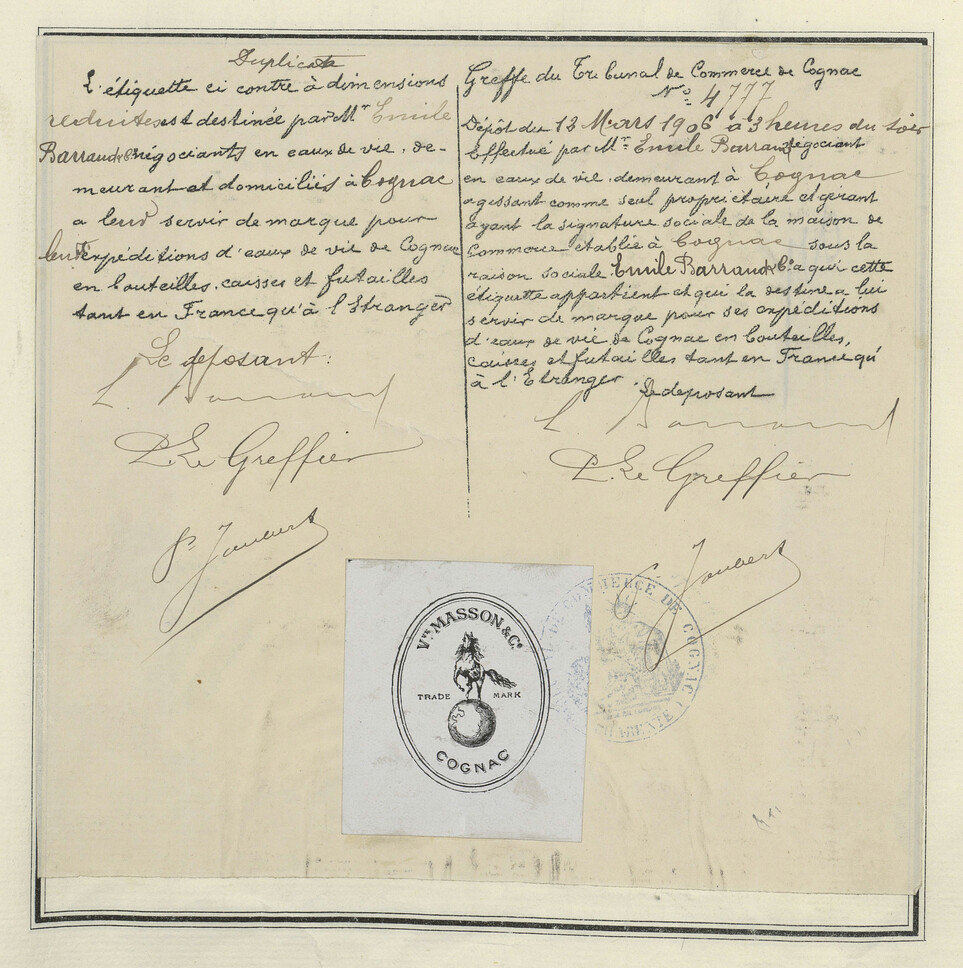 Duplicata
L'étiquette ci contre à dimensions
reduites est destinée par Mr Emile
Barraud & Co négociants en eaux de vie, de-
meurant et domiciliés à Cognac
a leur servir de marque pour
leurs expéditions d'eaux de vie de Cognac
en bouteilles, caisses et futailles
tant en France qu'à l'Etranger
Le deposant:
E. Barraud
P. Le Greffier
P. Joubert
Greffe du Tribunal de Commerce de Cognac
No 4777
Dépôt du 12 Mars 1906 à 3 heures du soir
Effectué par Mr Emile Barraud négociant
en eaux de vie, demeurant à Cognac
agissant comme seul propriétaire et gérant
ayant la signature sociale de la maison de
Commerce établie à Cognac sous la
raison sociale Emile Barraud & Co a qui cette
étiquette appartient et qui la destine a lui
servir de marque pour ses expéditions
d'eaux de vie de Cognac en bouteilles,
caisses et futailles tant en France qu'
à l'Etranger
Le deposant
E. Barraud
P. Le Greffier
Joubert
Vve MASSON & Co
TRADE MARK
COGNAC
DE COMMERCE DE COGNAC
CHARENTE